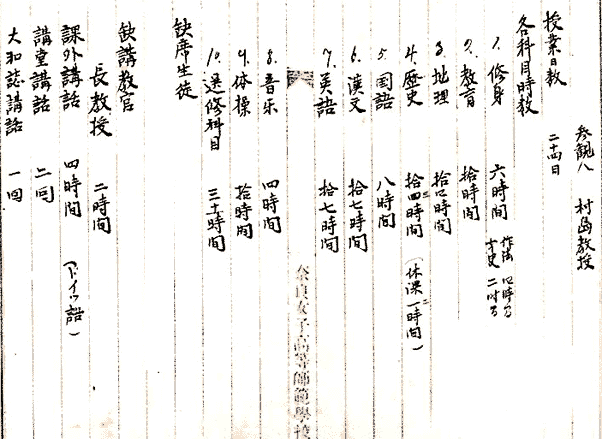 参観人 村島教授
授業日数 二十四日
各科目時数
1. 修身 六時間 作法 四時間
二時間
2. 教育 拾時間
3. 地理 拾四時間
4. 歴史 拾四時間 (休課一時間)
5. 国語 八時間
6. 漢文 拾七時間
7. 英語 拾七時間
奈良女子高等師範學校
8. 音乐 四時間
9. 体操 拾時間
10. 選修科目 三十時間
缺席生徒
缺講教官
長教授 二時間
課外講話 四時間 (ドイツ語)
講堂講話 二回
大和誌講話 一回